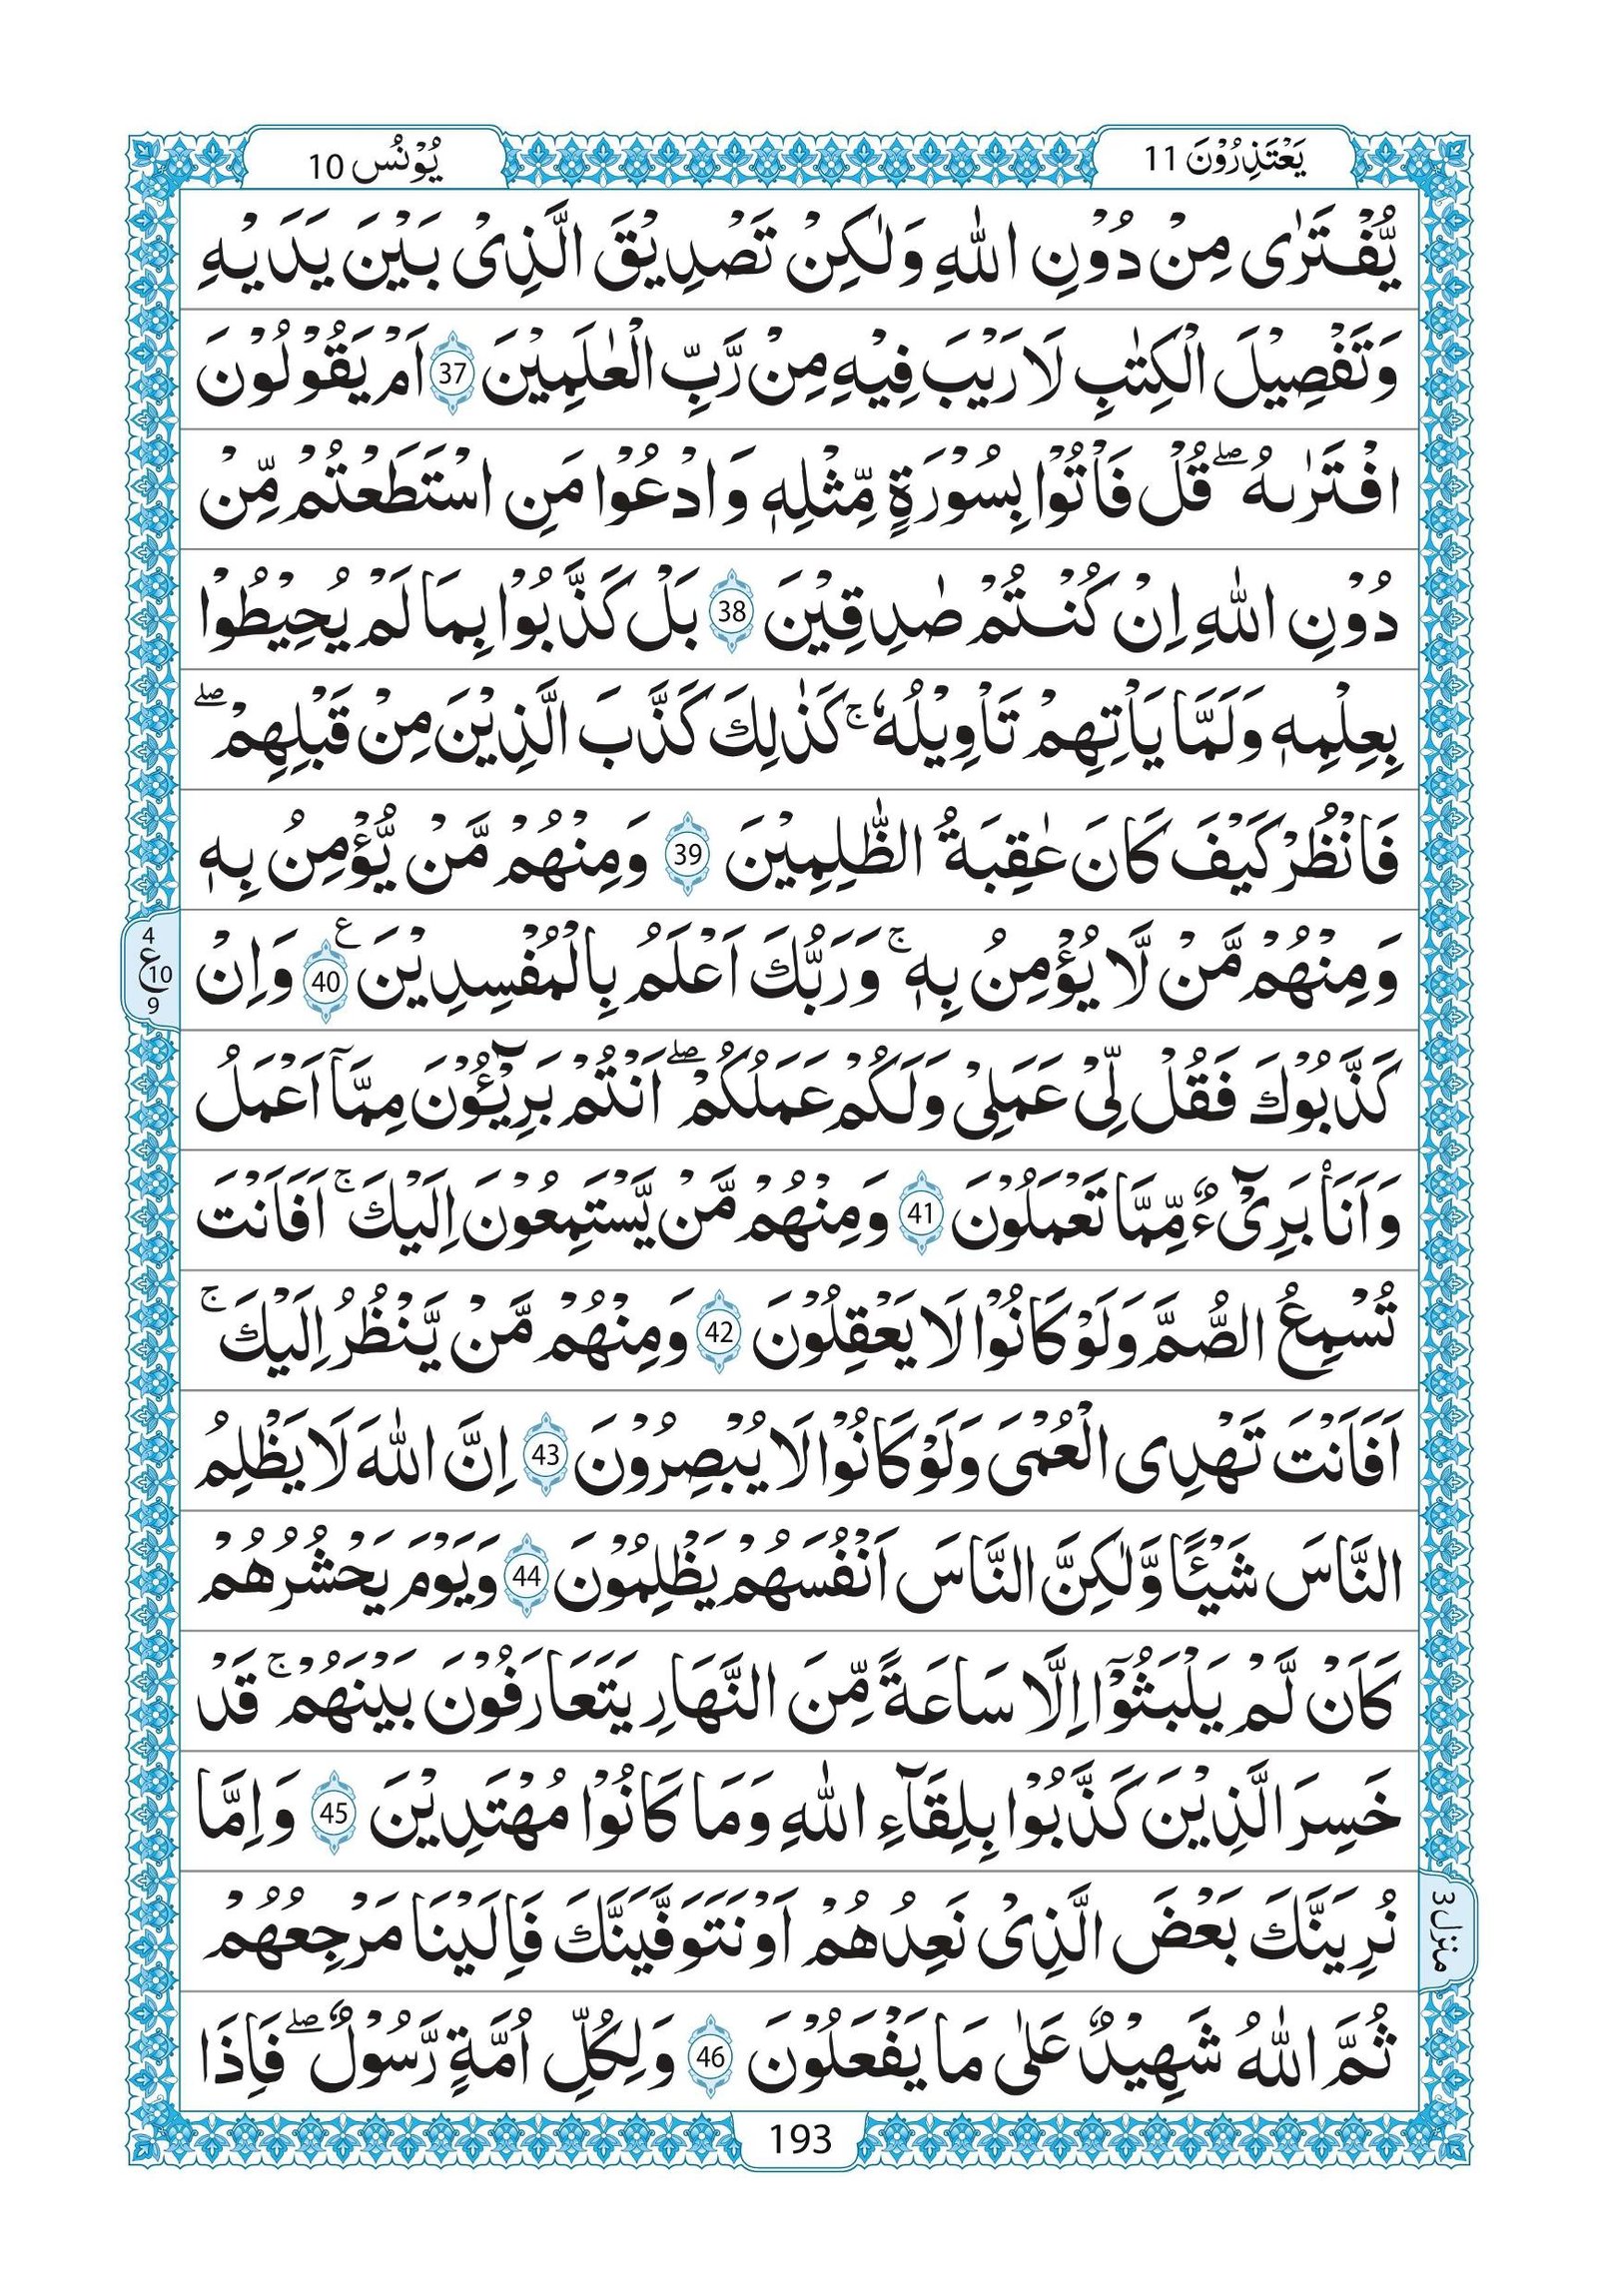 يَعْتَذِرُوْنَ 11
يُوْنُس 10
يُّفْتَرٰى مِنْ دُوْنِ اللّٰهِ وَلٰكِنْ تَصْدِيْقَ الَّذِىْ بَيْنَ يَدَيْهِ
وَتَفْصِيْلَ الْكِتٰبِ لَا رَيْبَ فِيْهِ مِنْ رَّبِّ الْعٰلَمِيْنَ 37 اَمْ يَقُوْلُوْنَ
افْتَرٰىهُ ۖ قُلْ فَاْتُوْا بِسُوْرَةٍ مِّثْلِهٖ وَادْعُوْا مَنِ اسْتَطَعْتُمْ مِّنْ
دُوْنِ اللّٰهِ اِنْ كُنْتُمْ صٰدِقِيْنَ 38 بَلْ كَذَّبُوْا بِمَا لَمْ يُحِيْطُوْا
بِعِلْمِهٖ وَلَمَّا يَاْتِهِمْ تَاْوِيْلُهٗ ۚ كَذٰلِكَ كَذَّبَ الَّذِيْنَ مِنْ قَبْلِهِمْ ۖ
فَانْظُرْ كَيْفَ كَانَ عٰقِبَةُ الظّٰلِمِيْنَ 39 وَمِنْهُمْ مَّنْ يُّؤْمِنُ بِهٖ
وَمِنْهُمْ مَّنْ لَّا يُؤْمِنُ بِهٖ ۚ وَرَبُّكَ اَعْلَمُ بِالْمُفْسِدِيْنَ ع 40 وَاِنْ
4 ع 10 9
كَذَّبُوْكَ فَقُلْ لِّىْ عَمَلِىْ وَلَكُمْ عَمَلُكُمْ ۖ اَنْتُمْ بَرِيْٓـُٔوْنَ مِمَّاۤ اَعْمَلُ
وَاَنَا۠ بَرِىْٓءٌ مِّمَّا تَعْمَلُوْنَ 41 وَمِنْهُمْ مَّنْ يَّسْتَمِعُوْنَ اِلَيْكَ ۚ اَفَاَنْتَ
تُسْمِعُ الصُّمَّ وَلَوْ كَانُوْا لَا يَعْقِلُوْنَ 42 وَمِنْهُمْ مَّنْ يَّنْظُرُ اِلَيْكَ ۚ
اَفَاَنْتَ تَهْدِى الْعُمْىَ وَلَوْ كَانُوْا لَا يُبْصِرُوْنَ 43 اِنَّ اللّٰهَ لَا يَظْلِمُ
النَّاسَ شَيْـًٔا وَّلٰكِنَّ النَّاسَ اَنْفُسَهُمْ يَظْلِمُوْنَ 44 وَيَوْمَ يَحْشُرُهُمْ
كَاَنْ لَّمْ يَلْبَثُوْۤا اِلَّا سَاعَةً مِّنَ النَّهَارِ يَتَعَارَفُوْنَ بَيْنَهُمْ ۚ قَدْ
خَسِرَ الَّذِيْنَ كَذَّبُوْا بِلِقَآءِ اللّٰهِ وَمَا كَانُوْا مُهْتَدِيْنَ 45 وَاِمَّا
نُرِيَنَّكَ بَعْضَ الَّذِىْ نَعِدُهُمْ اَوْ نَتَوَفَّيَنَّكَ فَاِلَيْنَا مَرْجِعُهُمْ
منزل 3
ثُمَّ اللّٰهُ شَهِيْدٌ عَلٰى مَا يَفْعَلُوْنَ 46 وَلِكُلِّ اُمَّةٍ رَّسُوْلٌ ۖ فَاِذَا
193